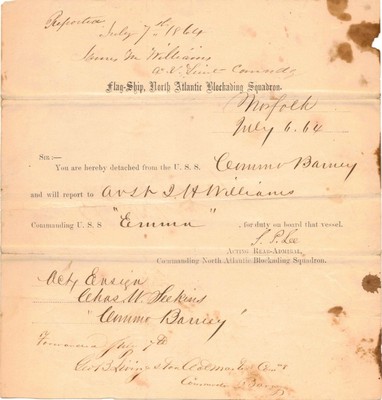 Reported
July 7th 1864
James M Williams
A. V. Lieut Commdg
Flag-Ship, North Atlantic Blockading Squadron.
Norfolk
July 6. 64
Sir:—
You are hereby detached from the U. S. S. Commo Barney
and will report to A V Lt J H Williams
Commanding U. S. S "Emma", for duty on board that vessel.
S. P. Lee
Acting Rear-Admiral,
Commanding North Atlantic Blockading Squadron.
Actg Ensign
Chas W. Seekins
"Commo Barney"
Forwarded July 7th
Geo B Livingston